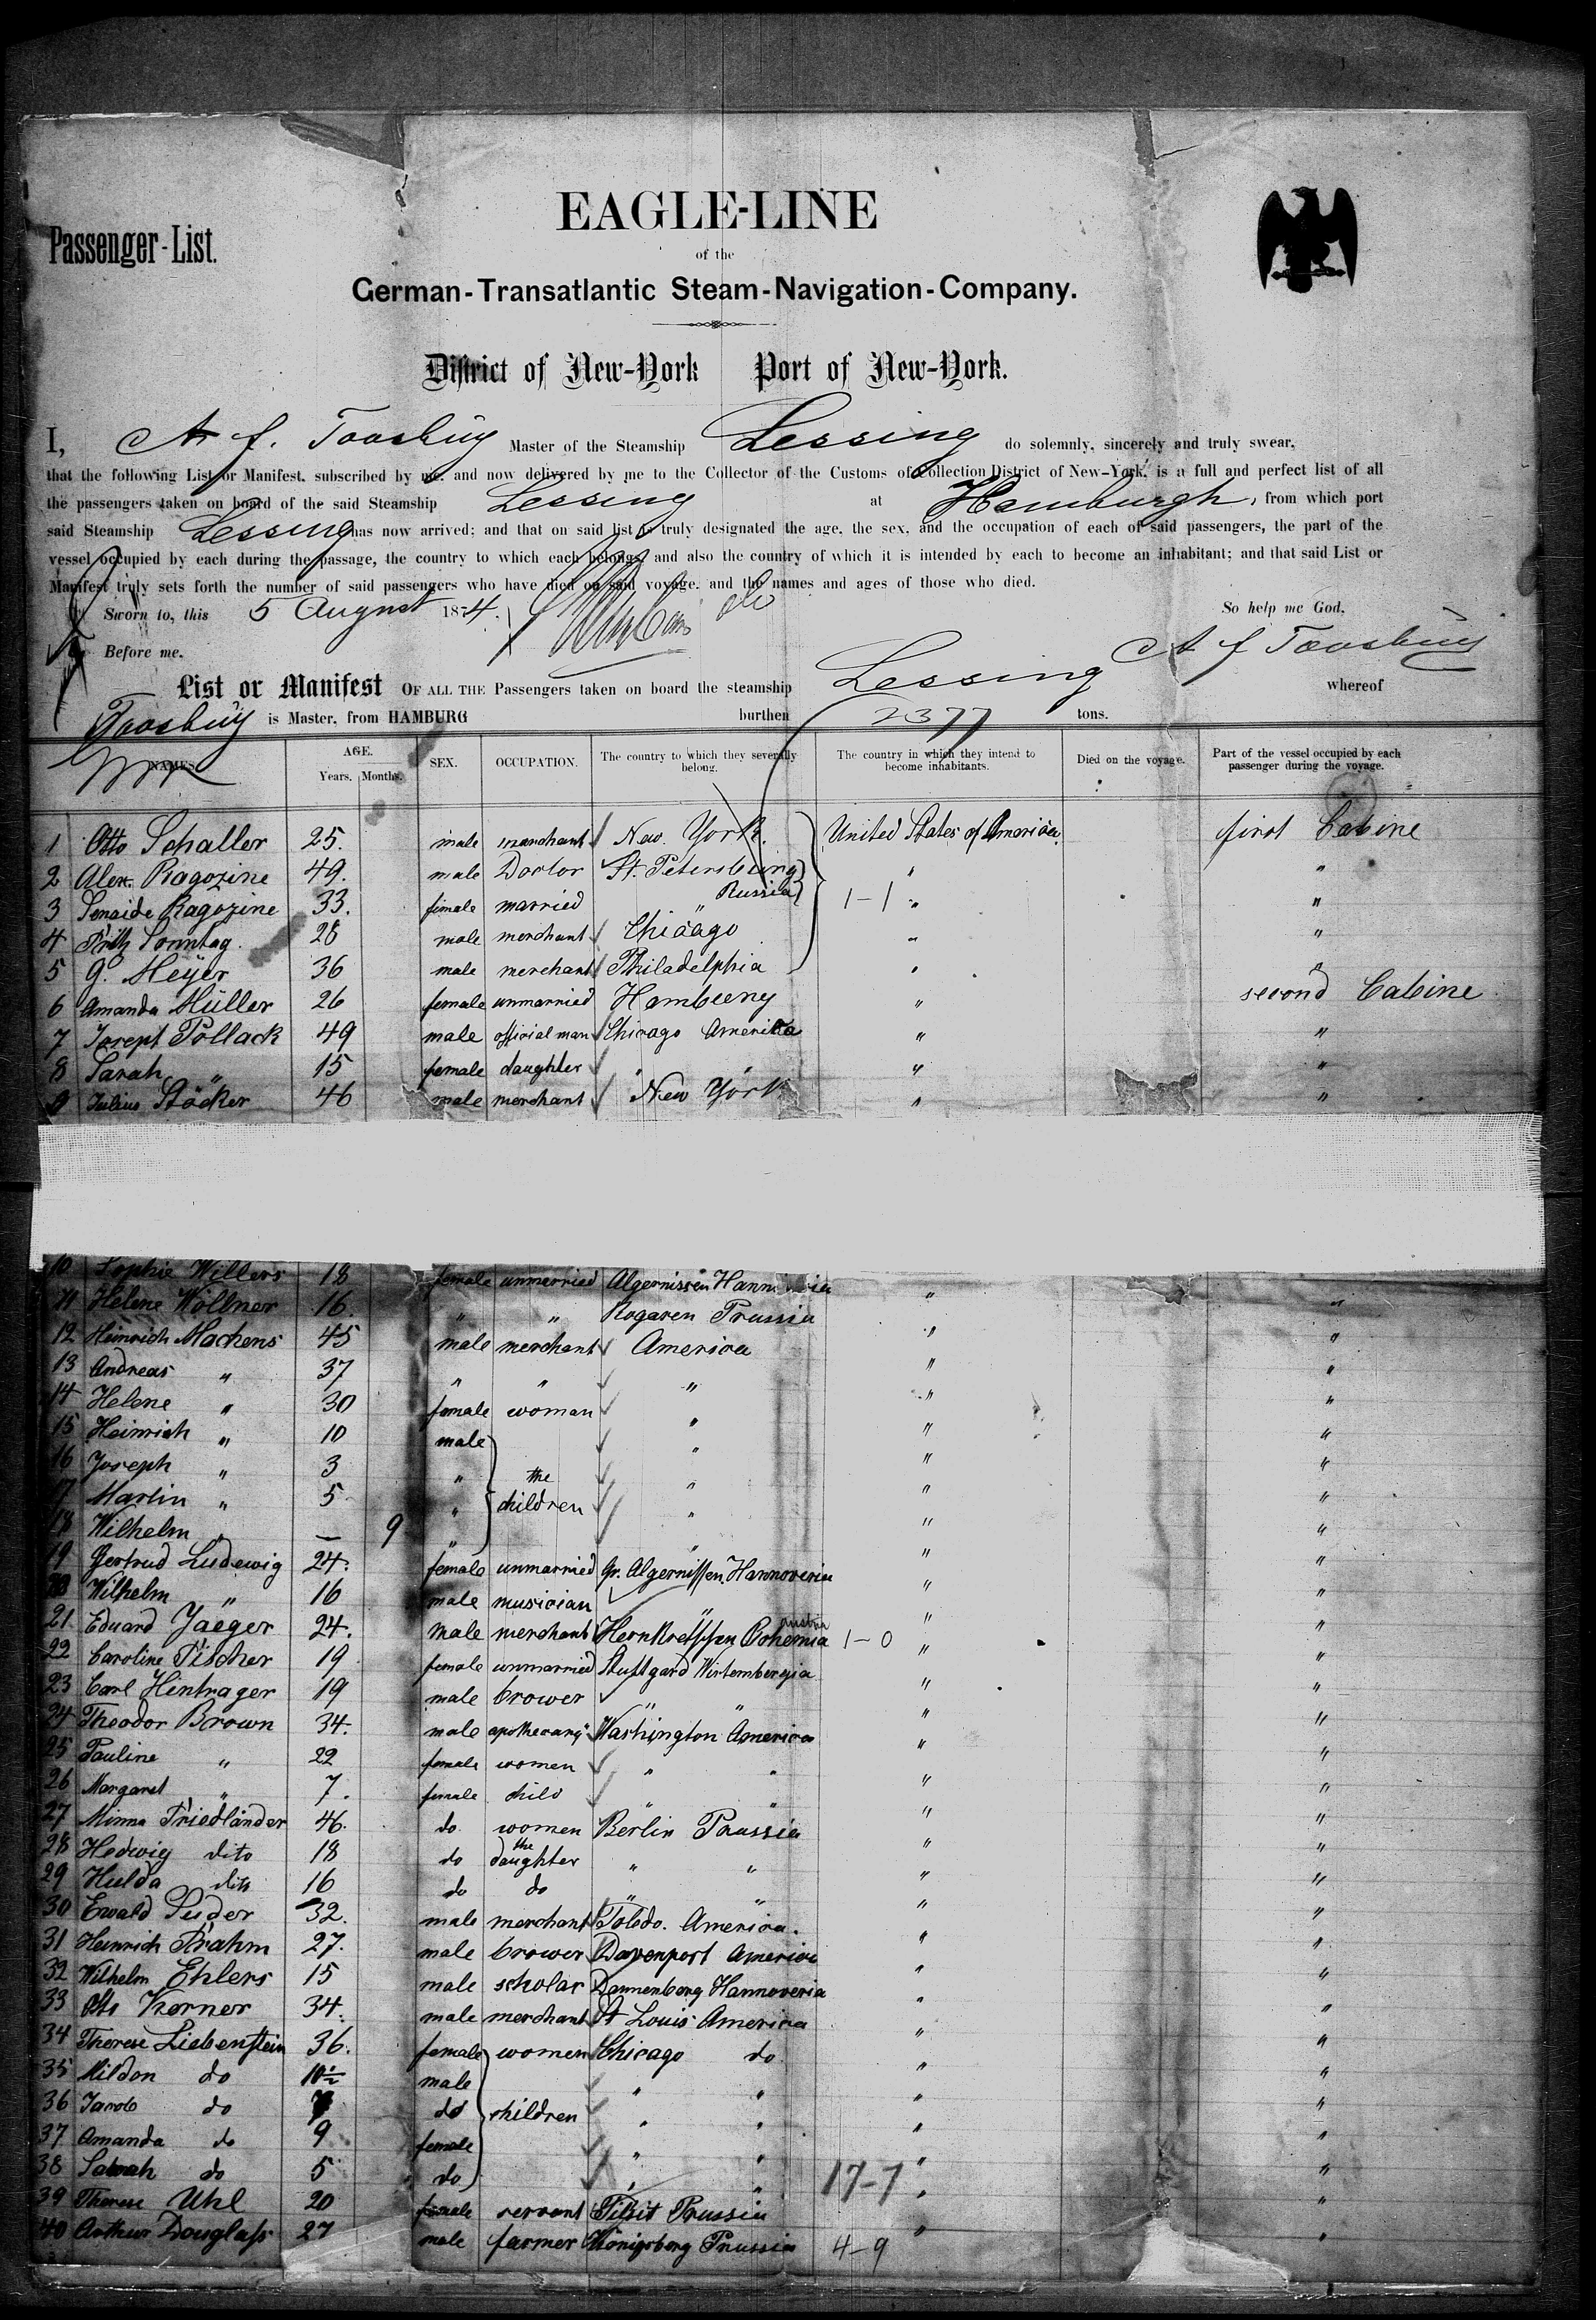 Passenger-List.
EAGLE-LINE
of the
German-Transatlantic Steam-Navigation-Company.
District of New-York Port of New-York.
I, Master of the Steamship Lessing do solemnly, sincerely and truly swear,
that the following List or Manifest, subscribed by me, and now delivered by me to the Collector of the Customs of Collection District of New-York, is a full and perfect list of all
the passengers taken on board of the said Steamship Lessing at Hamburgh, from which port
said Steamship Lessing has now arrived; and that on said list is truly designated the age, the sex, and the occupation of each of said passengers, the part of the
vessel occupied by each during the passage, the country to which each belongs, and also the country of which it is intended by each to become an inhabitant; and that said List or
Manifest truly sets forth the number of said passengers who have died on said voyage, and the names and ages of those who died.
Sworn to, this 5 August 1874. So help me God,
Before me.
List or Manifest OF ALL THE Passengers taken on board the steamship Lessing whereof
is Master, from HAMBURG burthen 2377 tons.
NAMES. AGE. Years. Months. SEX. OCCUPATION. The country to which they severally belong. The country in which they intend to become inhabitants. Died on the voyage. Part of the vessel occupied by each passenger during the voyage.
1 Otto Schaller 25. male marchant New York. United States of America. first Cabine
2 Alex. Ragozine 49. male Doctor St. Petersburg " "
3 Ragozine 33. female married " Russia 1-1 " "
4 Fritz Sonntag. 28 male merchant Chicago " "
5 G. Meyer 36 male merchant Philadelphia " "
6 Amanda Müller 26 female unmarried " second Cabine
7 Josept Pollack 49 male official man Chicago America " "
8 Sarah " 15 female daughter " " " "
9 Julius Stöcker 46 male merchant New York " "
10 Sophie Willers 18 female unmerried Algernissen " "
11 Helene Wöllner 16. " " Rogaren Prussia " "
12 Heinrich Machens 45 male merchant America " "
13 Andreas " 37 " " " " "
14 Helene " 30 female woman " " "
15 Heinrich " 10 male " " "
16 Joseph " 3 " the " " "
17 Martin " 5 " children " " "
18 Wilhelm " — 9 " " " "
19 Gertrud Ludewig 24. female unmarried Gr. Algernissen. Hannoveria " "
20 Wilhelm " 16 male musician " " "
21 Eduard Jaeger 24. male merchant Bohemia Austria 1-0 " "
22 Caroline Fischer 19 female unmarried Stuttgard Wirtembergia " "
23 Carl Hintrager 19 male brower " " " "
24 Theodor Brown 34. male apothecary Washington America " "
25 Pauline " 22 female women " " " "
26 Margaret " 7. female child " " " "
27 Minna Friedländer 46. do. women Berlin Prussia " "
28 Hedwig dito 18 do the daughter " " " "
29 Hulda dito 16 do do " " " "
30 Ewald 32. male merchant Toledo. America. " "
31 Heinrich Prahm 27. male brower Davenport America " "
32 Wilhelm Ehlers 15 male scholar Dannenberg Hannoveria " "
33 Otto Kerner 34. male merchant St Louis America " "
34 Therese Liebenstein 36. female women Chicago do " "
35 Mildon do 10½ male " " " "
36 Jacob do 7 do children " " " "
37 Amanda do 9 female " " " "
38 Sarah do 5 do " " 17-7 " "
39 Therese Uhl 20 female servant Tilsit Prussia " "
40 Arthur Douglass 27 male farmer Königsberg Prussia 4-9 " "